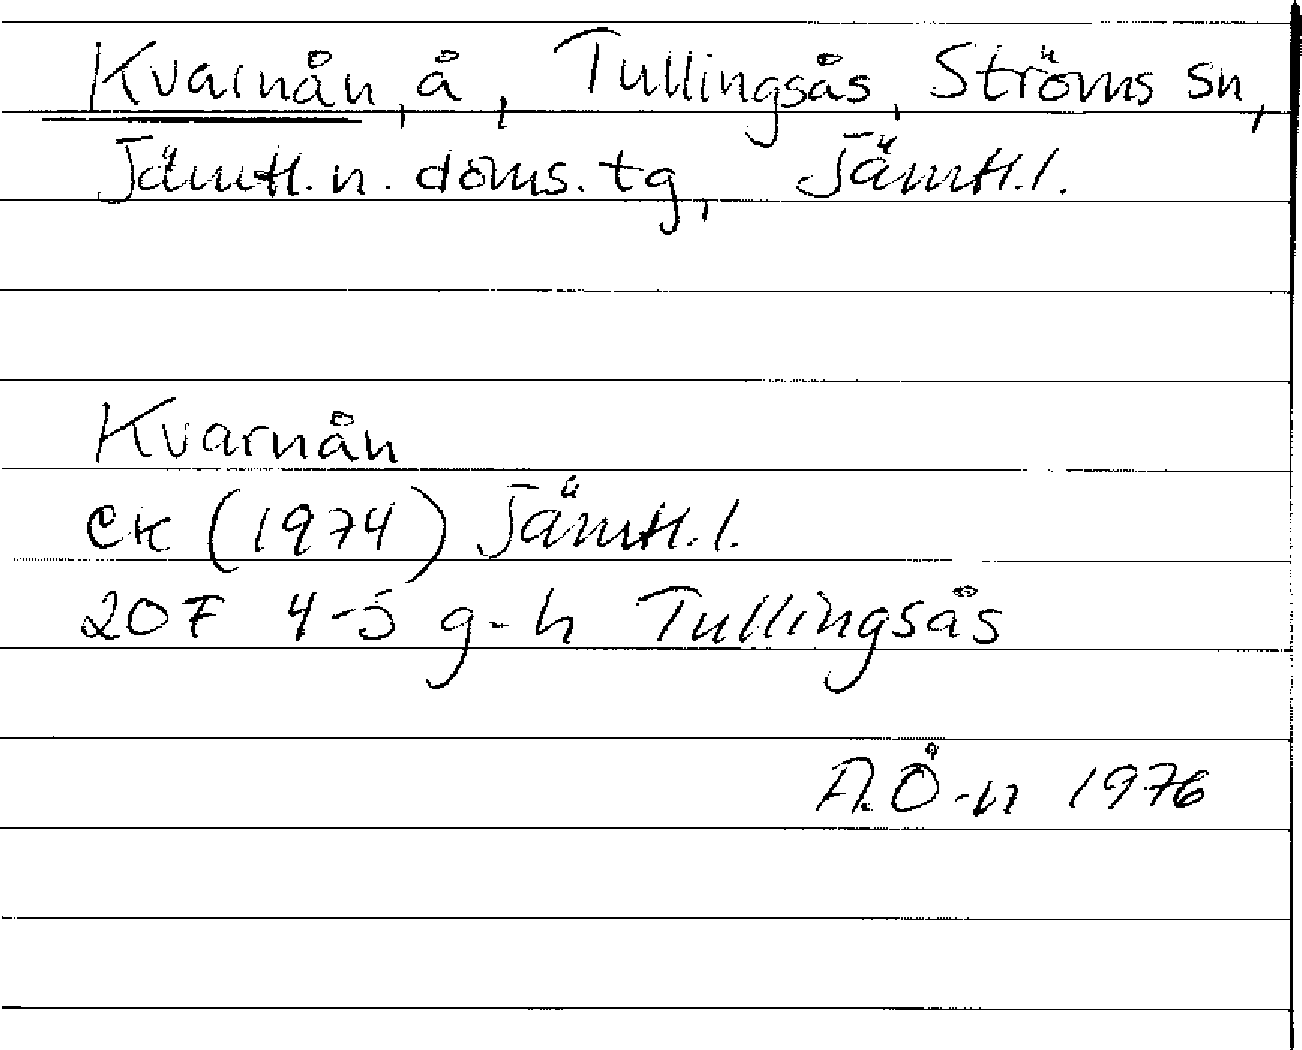 Kvarnån, å, Tullingsås, Ströms sn,
Jämtl. n. doms. tg, Jämtl. l.
Kvarnån
CK (1974) Jämtl. l.
20F 4-5 g-h Tullingsås
A. Ö-n 1976